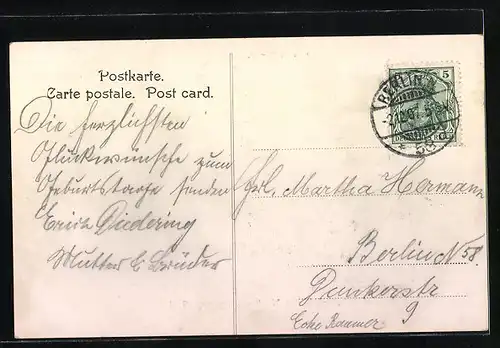 Postkarte.
Carte postale. Post card.
Die herzlichsten
Glückwünsche zum
Geburtstage senden
Erich Diedering
Mutter & Brüder
BERLIN
5
Frl. Martha Hermann
Berlin N 58.
Dunkerstr
9
Ecke Raumer